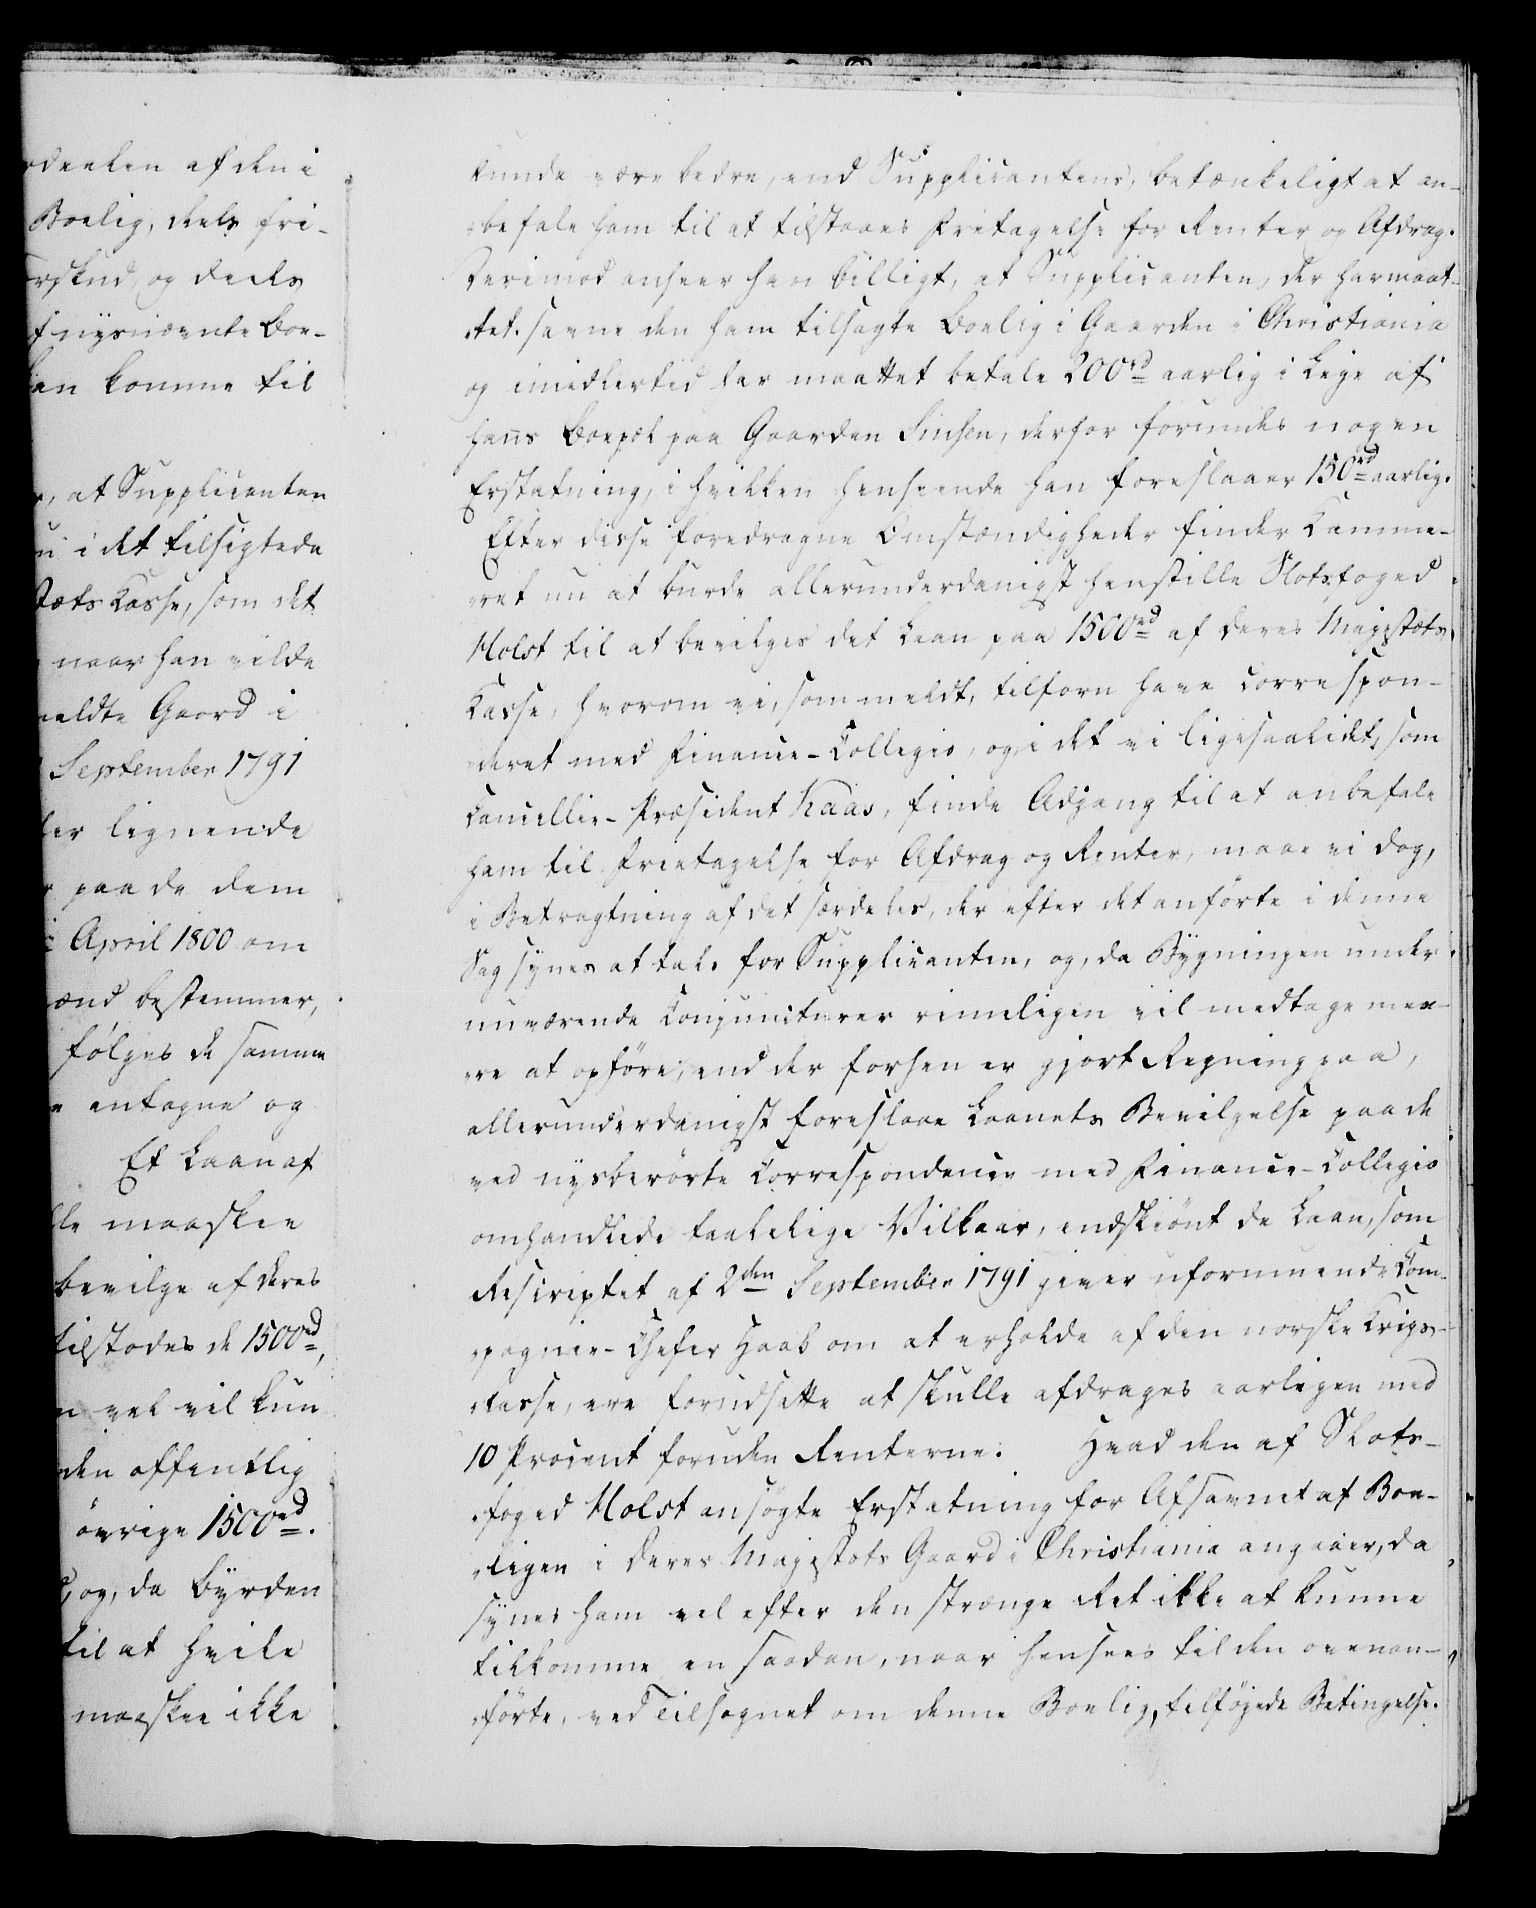 rdeelen af den i
Boelig, deels fri-
rskud, og deels
f nysnævnte Boe-
an komme til
, at Supplicanten
i det tilsigtede
tæts Kasse, som det
naar han vilde
meldte Gaard i
September 1791
ler lignende
paa de dem
April 1800 om
ænd bestemmer,
følges de samme
antagne og
Et Laan af
lle maaskee
bevilge af Deres
tilstodes de 1500rd,
vel vil kun
den offentlig
øvrige 1500rd.
og, da Byrden
til at hvile
maaskee ikke
kunde være bedre, end Supplicantens, betænkeligt at an-
befale ham til at tilstaaes Fritagelse for Renter og Afdrag.
Derimod anseer han billigt, at Supplicanten, der har maat-
tet savne den ham tilsagte Boelig i Gaarden i Christiania
og imidlertid har maattet betale 200rd aarlig i Leje af
hans Boepæl paa Gaarden Sinsen, derfor forundes nogen
Erstatning, i hvilken Henseende han foreslaaer 150rd aarlig.
Efter disse foredragne Omstændigheder finder Kamme-
ret nu at burde allerunderdanigst henstille Slotsfoged
Holst til at bevilges det Laan paa 1500rd af Deres Majestæts
Kasse, hvorom vi, som meldt, tilforn have correspon-
deret med Finance-Collegio, og i det vi ligesaalidet, som
Cancellie-Præsident Kaas, finde Adgang til at anbefale
ham til Fritagelse for Afdrag og Renter, maae vi dog,
i Betragtning af det særdeles, der efter det anførte i denne
Sag synes at tale for Supplicanten, og, da Bygningen under
nuværende Conjuncturer rimeligen vil medtage mee-
re at opføre, end der forhen er gjort Regning paa,
allerunderdanigst foreslaae Laanets Bevilgelse paa de
ved nysberørte Correspondence med Finance-Collegio
omhandlede taalelige Vilkaar, endskiønt de Laan, som
Rescriptet af 2den September 1791 giver uformuende Com-
pagnie-Chefer Haab om at erholde af den norske Krigs-
Casse, ere forudsatte at skulle afdrages aarligen med
10 Procent foruden Renterne. Hvad den af Slots-
foged Holst ansøgte Erstatning for Afsavnet af Boe-
ligen i Deres Majestæts Gaard i Christiania angaaer, da
synes ham vel efter den strænge Ret ikke at kunne
tilkomme en saadan, naar hensees til den ovenan-
førte, ved Tilsagnet om denne Boelig, tilføjede Betingelse.